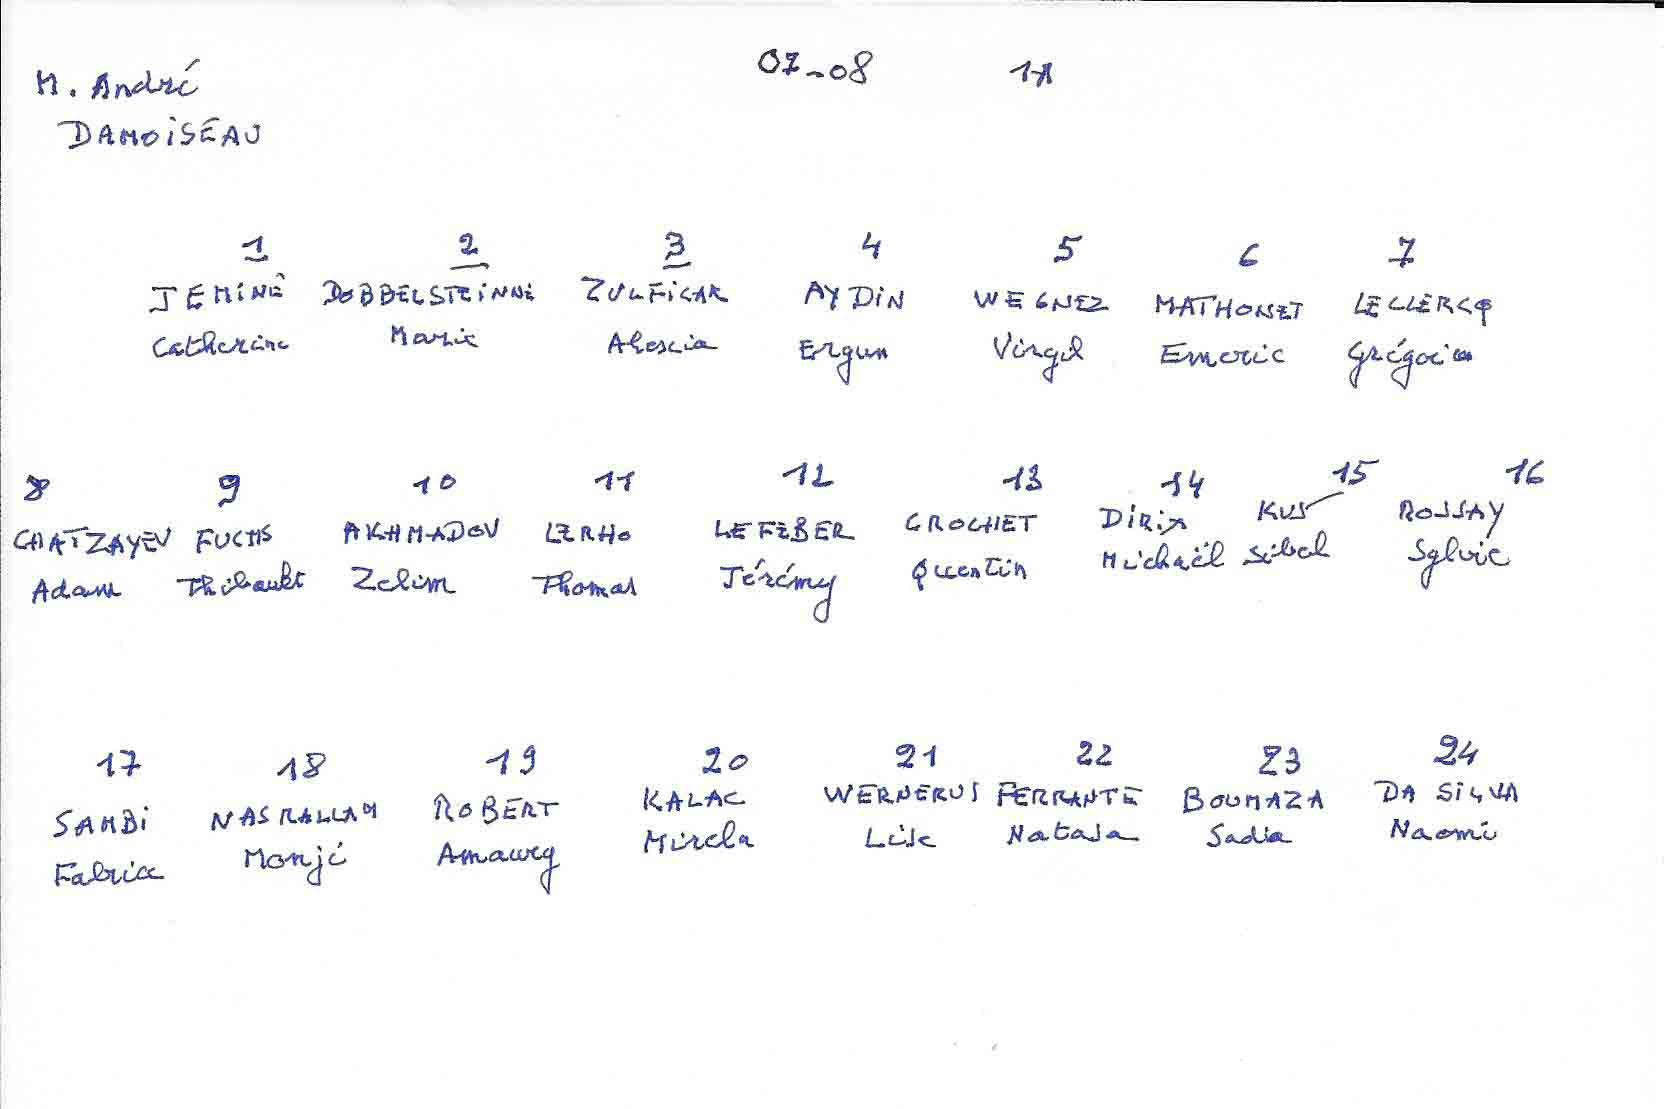 M. André 07-08 1A
DAMOISEAU
1 2 3 4 5 6 7
JEMINÉ DOBBELSTEINNE ZULFICAR AYDIN WEGNEZ MATHONET LECLERCQ
Catherine Marie Alescia Ergun Virgil Emeric Grégoire
8 9 10 11 12 13 14 15 16
CHATZAYEV FUCHS AKHMADOV LERHO LEFEBER CROCHET DIRIX KUS ROSSAY
Adam Thibault Zelim Thomas Jérémy Quentin Michaël Sibel Sylvie
17 18 19 20 21 22 23 24
SAMBI NASRALLAH ROBERT KALAC WERNERUS FERRANTE BOUMAZA DA SILVA
Fabrice Monji Amaury Mirela Lise Natasa Sadia Naomi